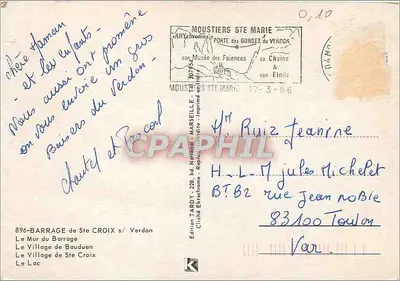 0,10
MOUSTIERS STE MARIE
PORTE DES GORGES DU VERDON
son Musée des Faiences
sa Chaine &
son Etoile
MOUSTIERS STE MARIE 17-3-86
Chère Maman
et les enfants -
Nous aussi ont promène
on vous envoie un gros
Baisers du Verdon -
Chantal et Pascal
Mr Ruiz Jeanine
H-L-M jules Michelet
BT.B2 rue jean noBie
83100 Toulon
Var.
CPAPHIL
Edition TARDY - 228, bd. National - MARSEILLE
Cliché Ektachrome - Reproduction interdite - Imprimé
896-BARRAGE de Ste CROIX s/ Verdon
Le Mur du Barrage
Le Village de Bauduen
Le Village de Ste Croix
Le Lac
K